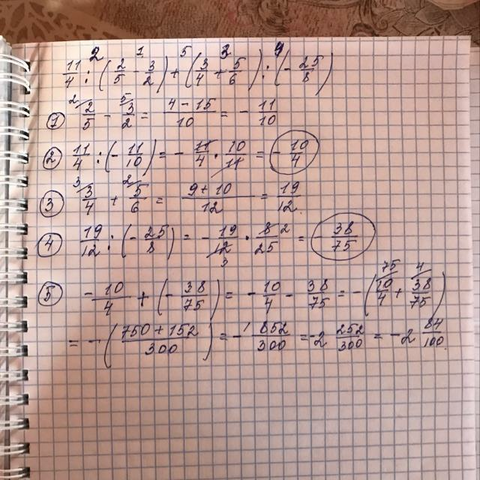 2 1 5 3 4
11/4 : (2/5 - 3/2) + (3/4 + 5/6) : (-25/8)
① ²⁄2/5 - ⁵⁄3/2 = (4 - 15)/10 = -11/10
② 11/4 : (-11/10) = -11/4 · 10/11 = -10/4
③ ³⁄3/4 + ²⁄5/6 = (9 + 10)/12 = 19/12
④ 19/12 : (-25/8) = -19/12 3 · 8/25 2 = 38/75
⑤ -10/4 + (-38/75) = -10/4 - 38/75 = -(⁷⁵⁄10/4 + ⁴⁄38/75)
= -((750 + 152)/300) = -852/300 = -2 252/300 = -2 84/100